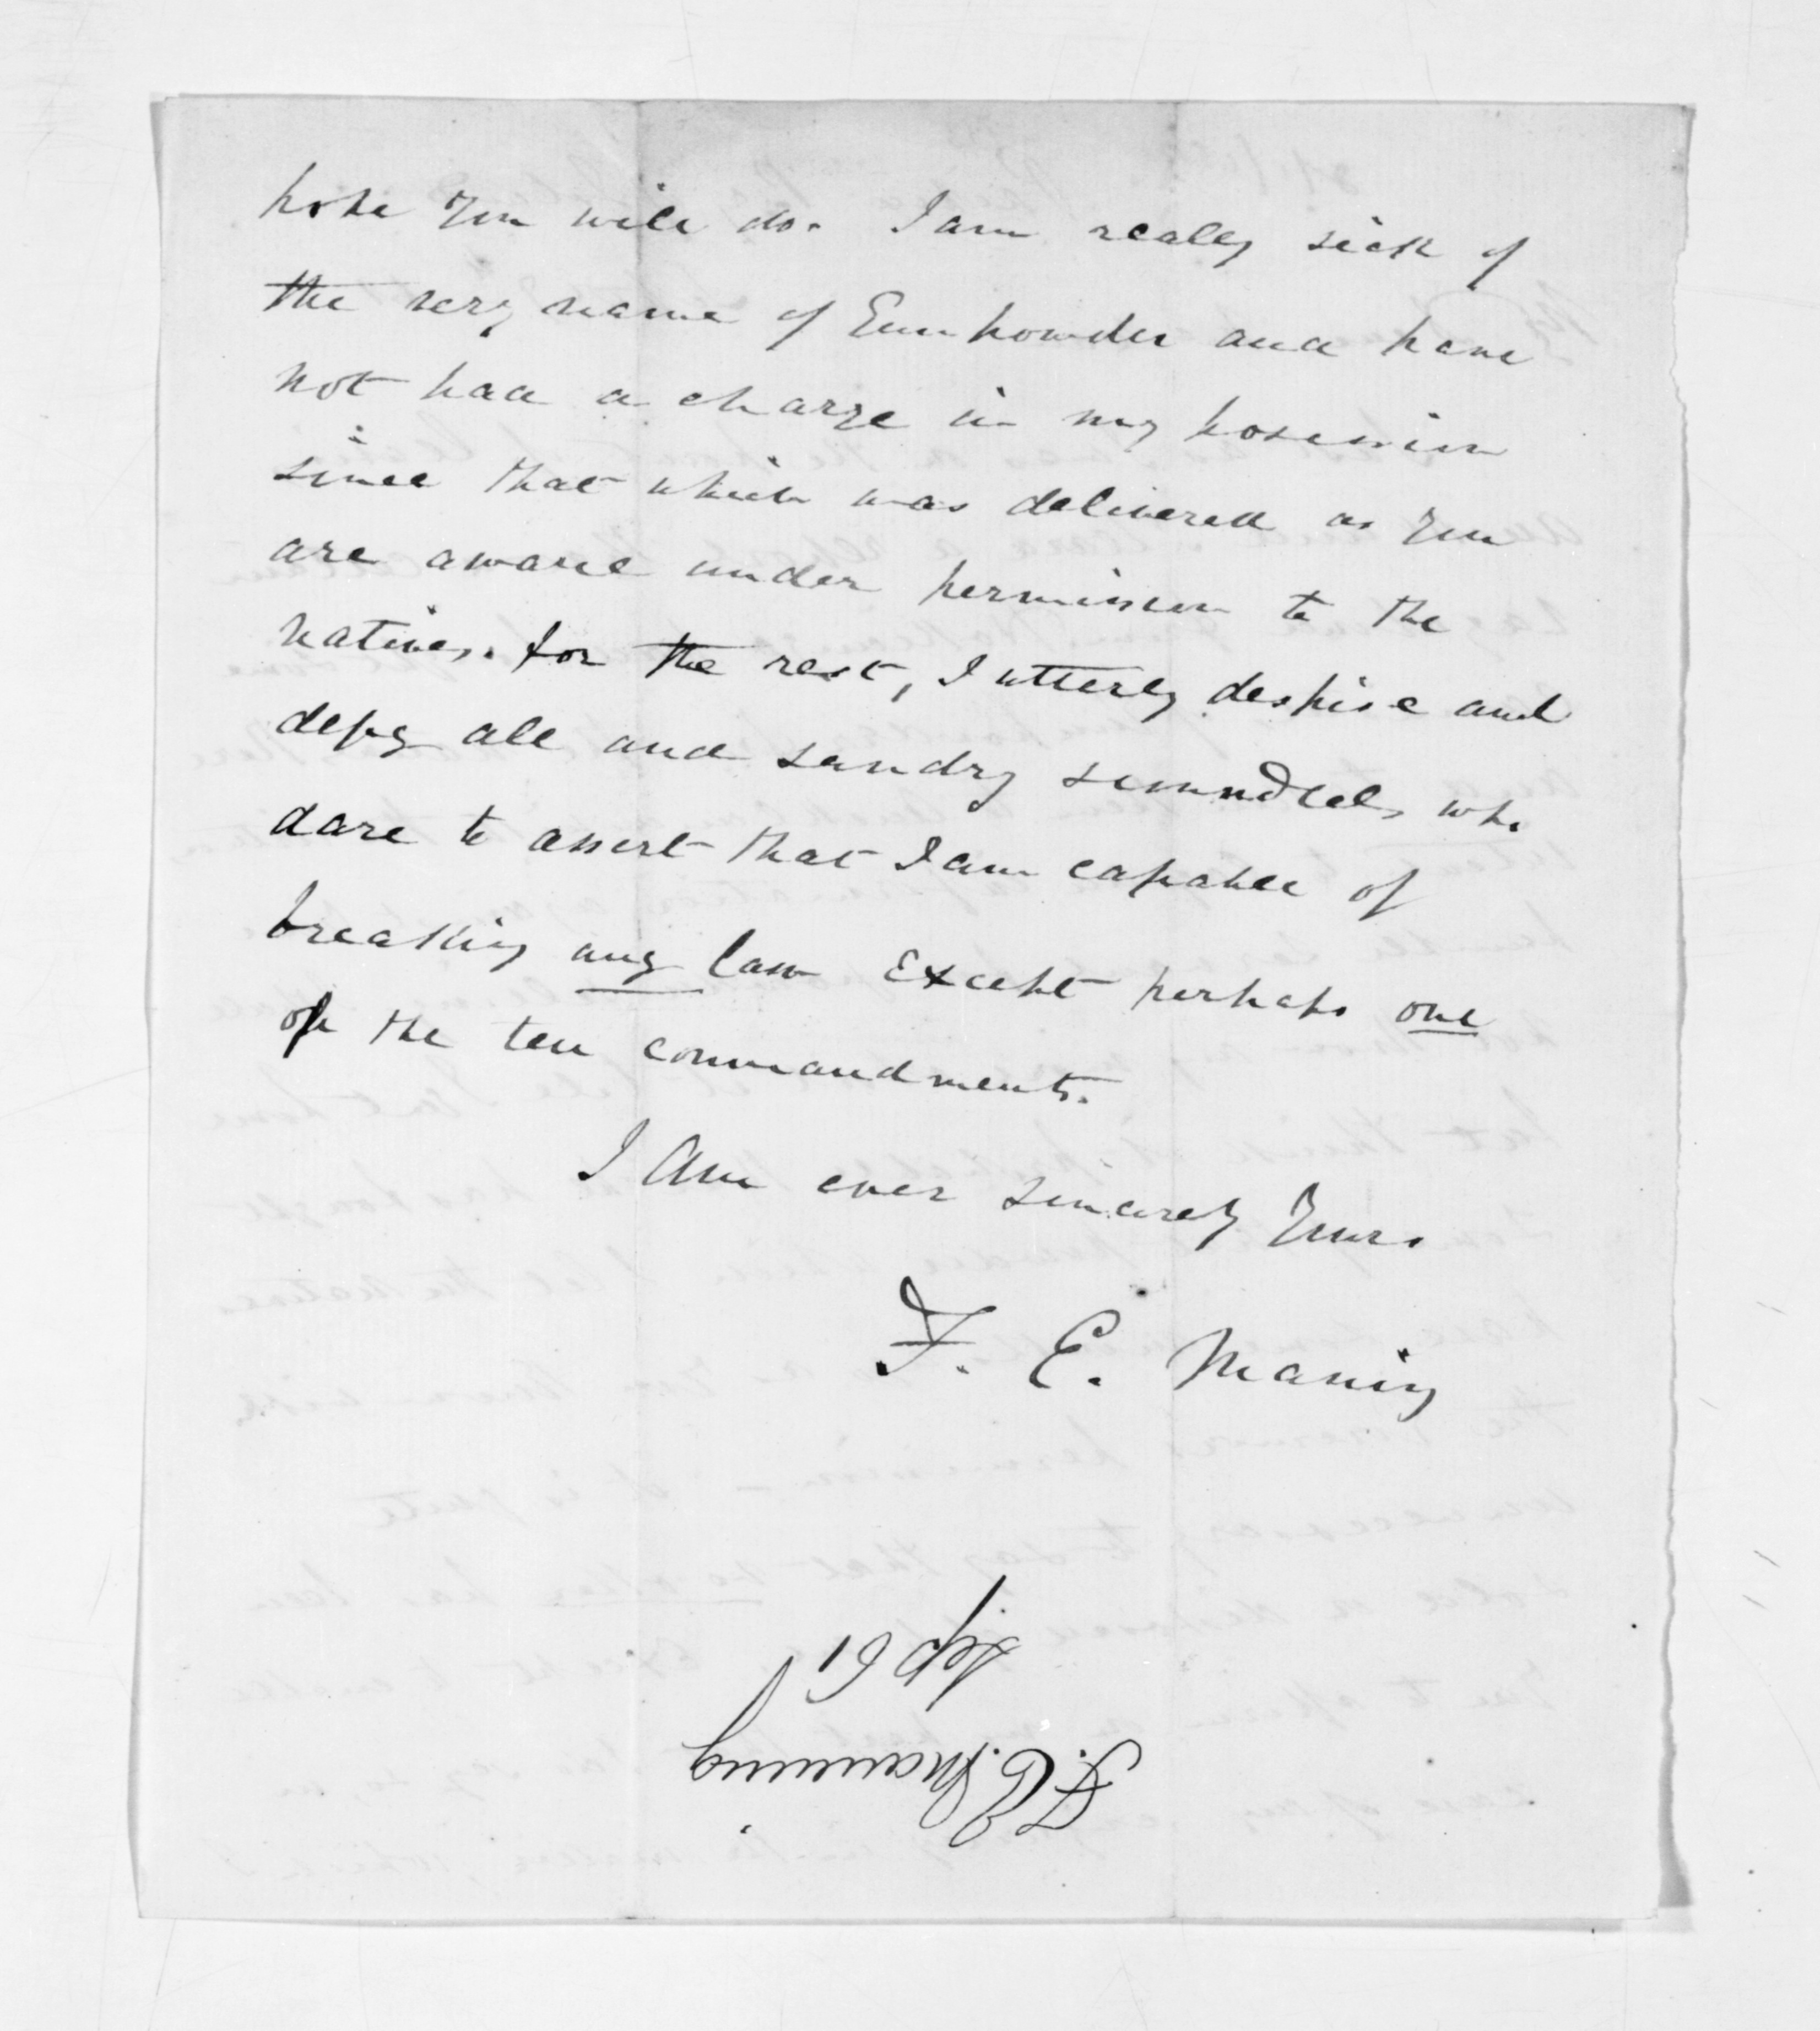 hope you will do. I am really sick of
the very name of Gunpowder and have
not had a charge in my possession
since that which was delivered as you
are aware under permission to the
natives. for the rest, I utterly despise and
defy all and sundry scoundrels who
dare to assert that I am capable of
breaking any law except perhaps one
of the ten commandments.
I Am ever sincerely Yours
F. E. Maning
F. E. Maning
Sep 61